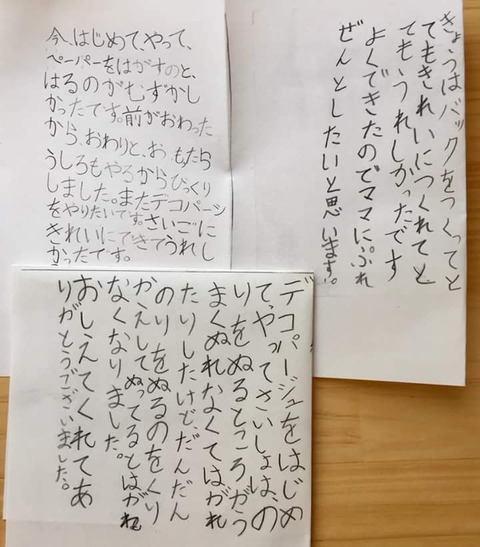 今、はじめて、やって、
ペーパーをはがすのと、
はるのがむずかし
かったてす。前がおわった
から、おわりと、おもったら
うしろもやるからびっくり
しました。またデコパージ
をやりたいです。さいごに
きれいにできてうれし
かったてす。
きょうはバックをつくってと
てもきれいにつくれてと
てもうれしかったです
よくできたのでママにぷれ
ぜんとしたいと思います。
デコパージュをはじめ
て、やってさいしょは、の
りをぬるところがう
まくぬれなくてはがれ
たりしたけど、だんだん
のりをぬるのをくり
かえしてぬってるとはがれ
なくなりました。
おしえてくれてあ
りがとうございました。